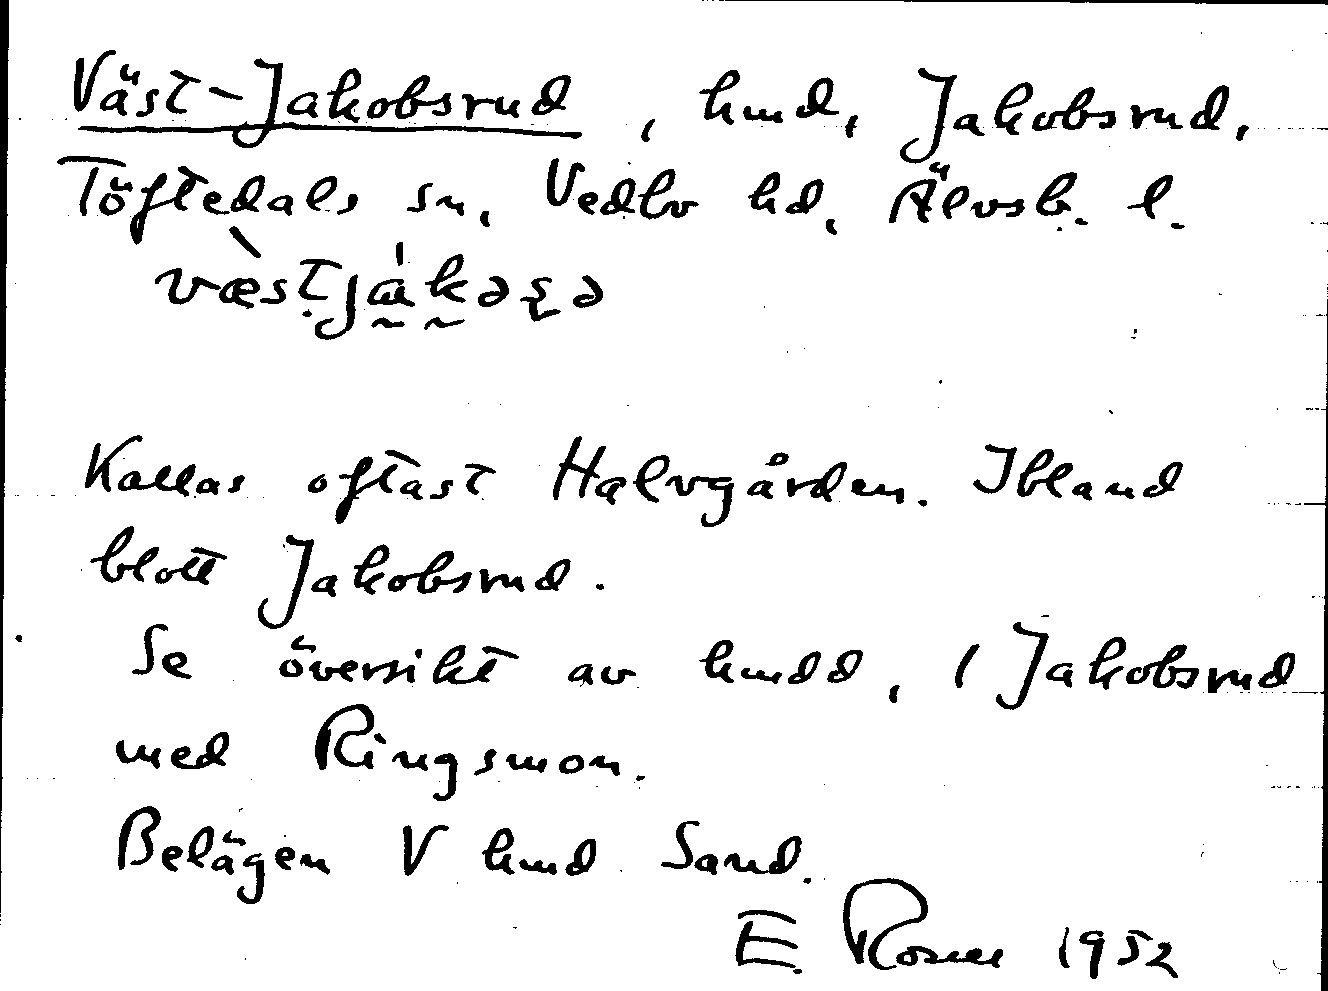 Väst-Jakobsrud, hmd, Jakobsrud,
Töftedals sn, Vedbo hd, Älvsb. l.
væ̀stjákəʂə
Kallas oftast Halvgården. Ibland
blott Jakobsrud.
Se översikt av hmdd, 1 Jakobsrud
med Ringsmon.
Belägen V hmd Sand.
E. Rosell 1952